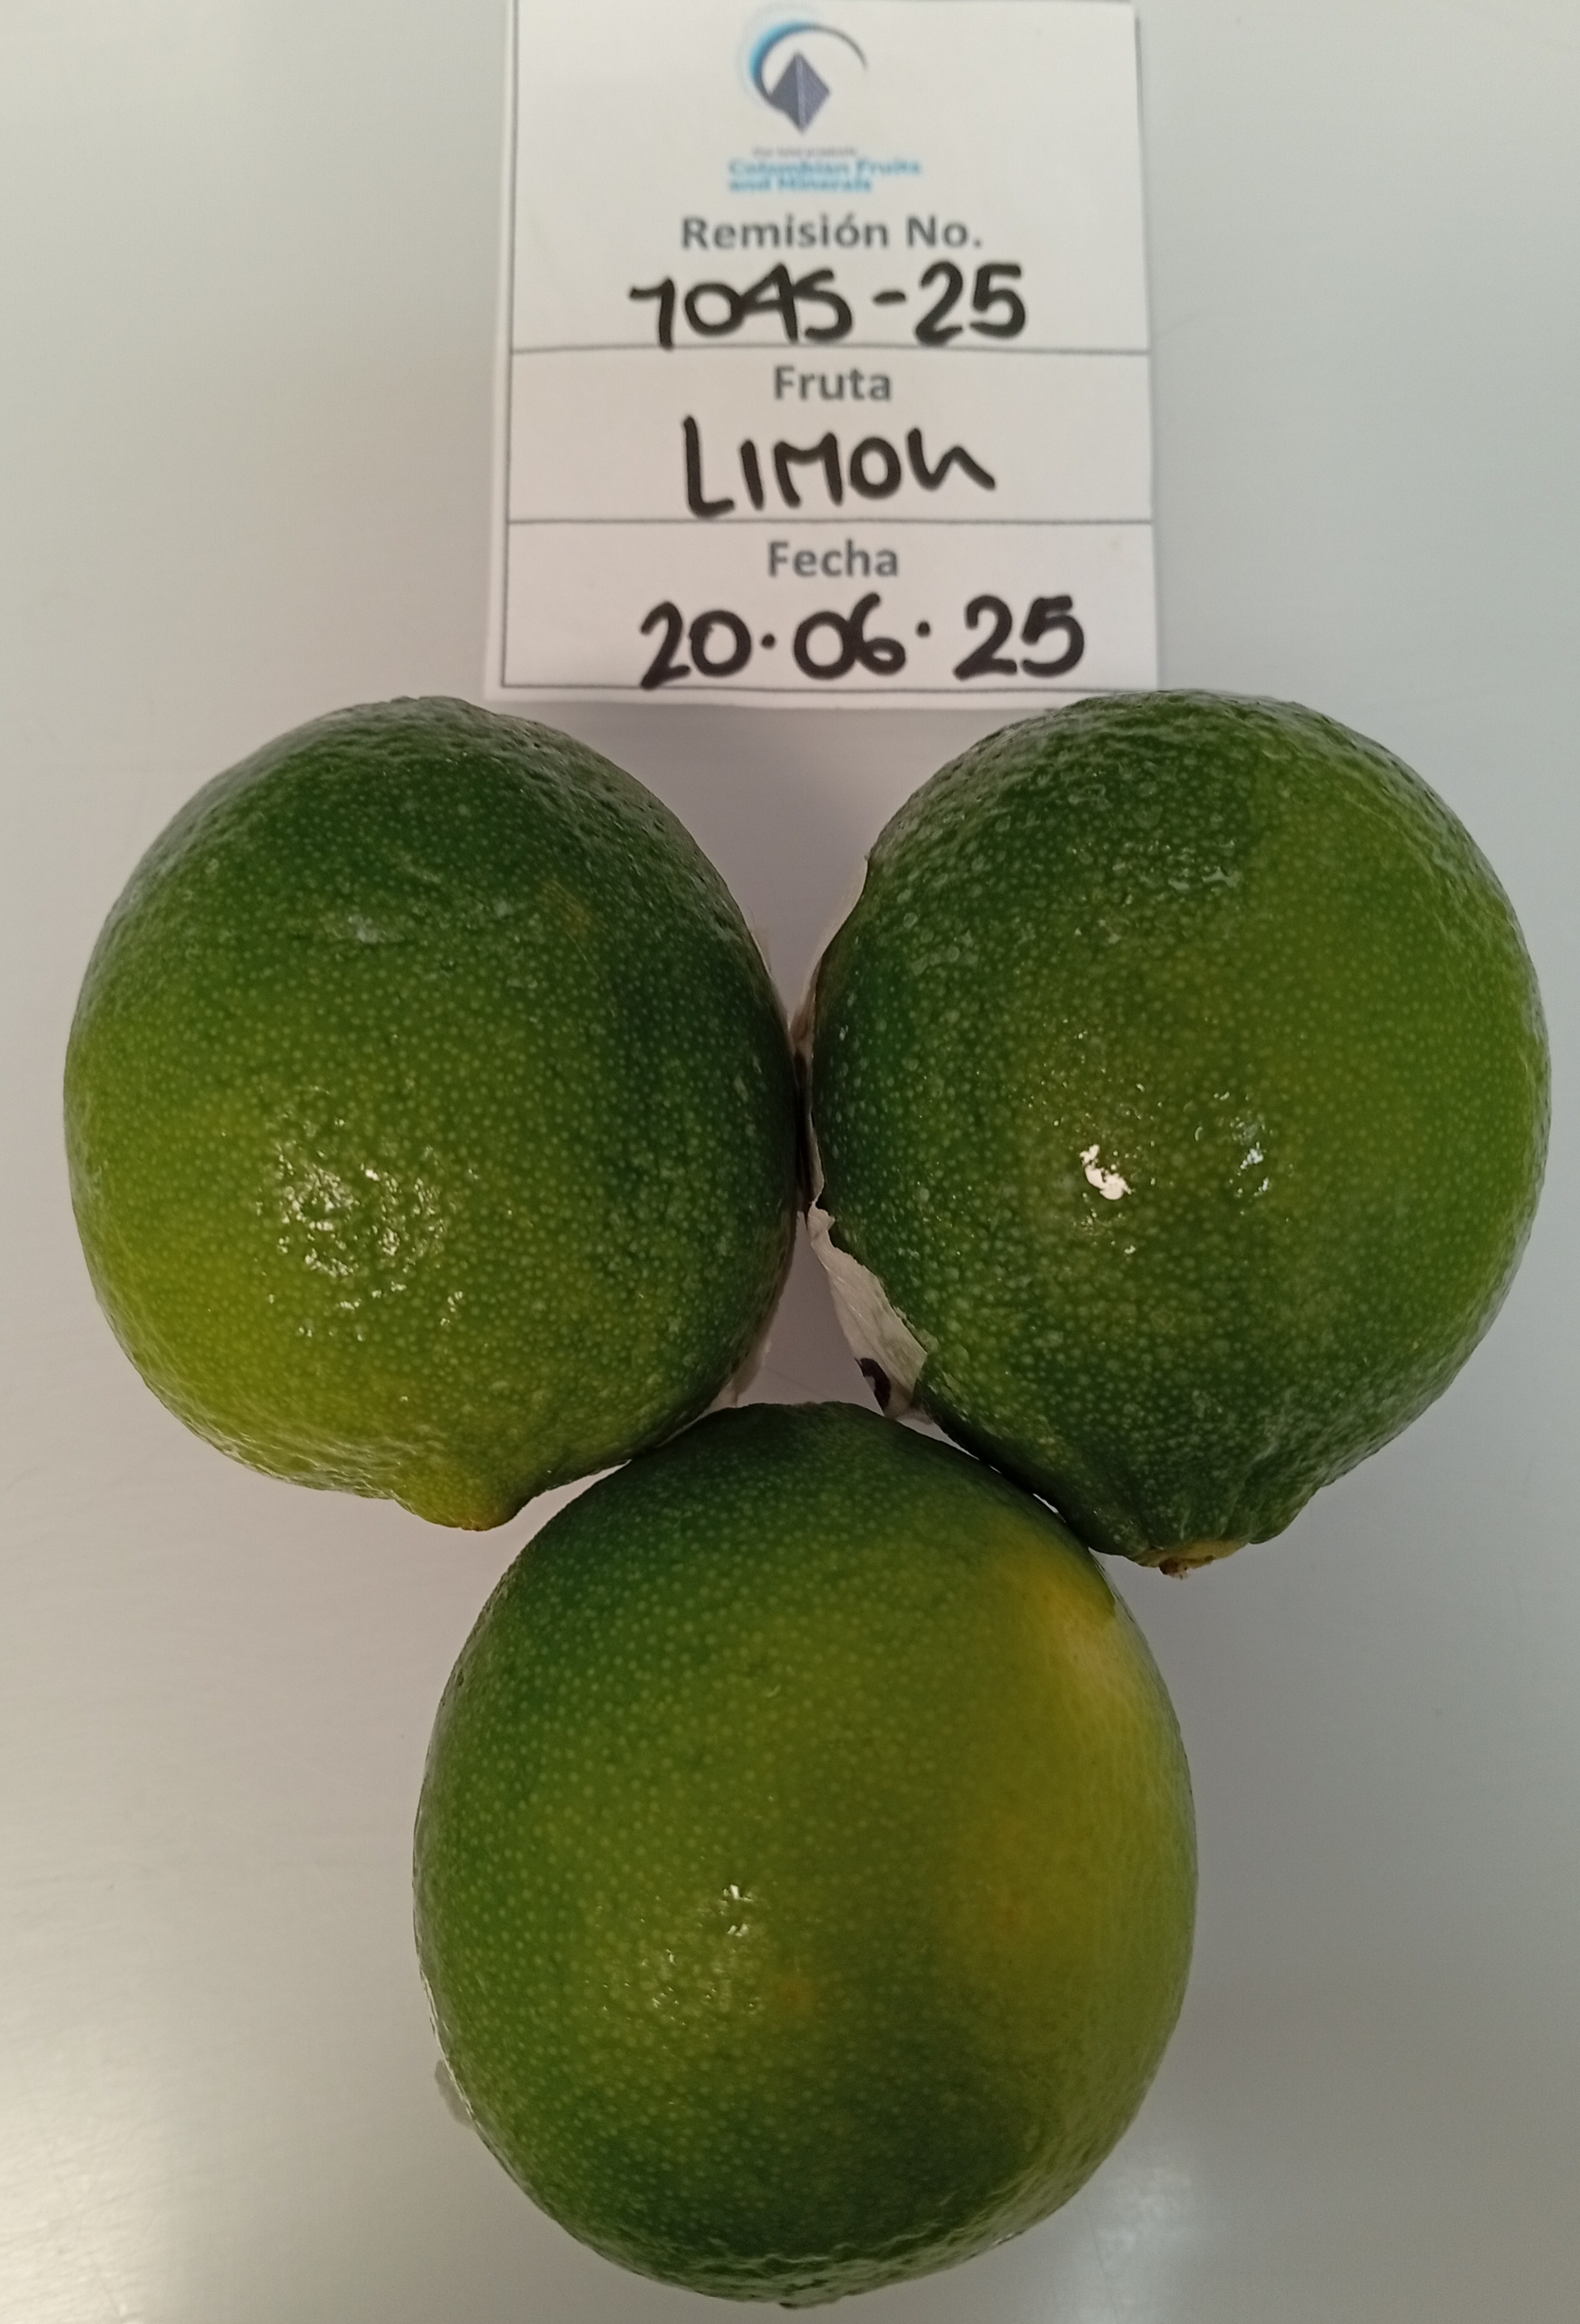 Colombian Fruits
and Minerals
Remisión No.
1045-25
Fruta
LIMON
Fecha
20.06.25